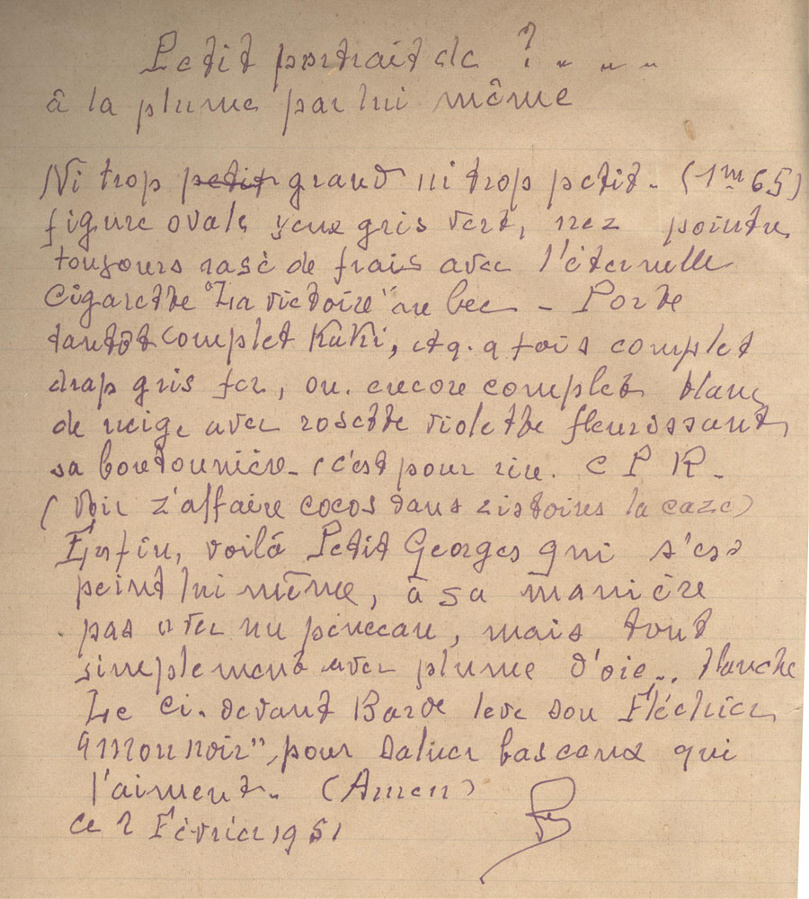 Petit portrait de ? . . . .
à la plume par lui même
Ni trop petit grand ni trop petit. (1m 65)
figure ovale yeux gris vert, nez pointu,
toujours rasé de frais avec l'éternelle
Cigarette "La victoire" au bec - Porte
tantôt complet KaKi, et q. q fois complet
drap gris fer, ou encore complet blanc
de neige avec rosette violette fleurissant
sa boutounière - (c'est pour rire. C P R.
(Voir z'affaire cocos dans zistoires la caze)
Enfin, voilà Petit Georges qui s'est
peint lui même, à sa manière
pas avec un pinceau, mais tout
simplement avec plume d'oie...
Le Ci. devant Barde leve son
"Amounoir", pour saluer bascaux qui
l'aiment. (Amen)
ce 2 Février 1951